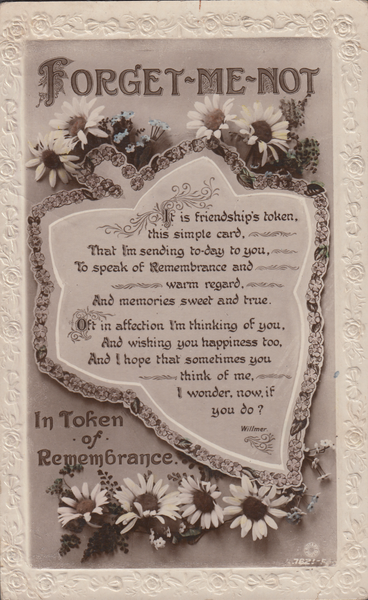 FORGET-ME-NOT
It is friendship's token,
this simple card,
That I'm sending to-day to you,
To speak of Remembrance and
warm regard,
And memories sweet and true.
Oft in affection I'm thinking of you,
And wishing you happiness too,
And I hope that sometimes you
think of me,
I wonder, now, if
you do?
Willmer.
In Token
of
Remembrance.